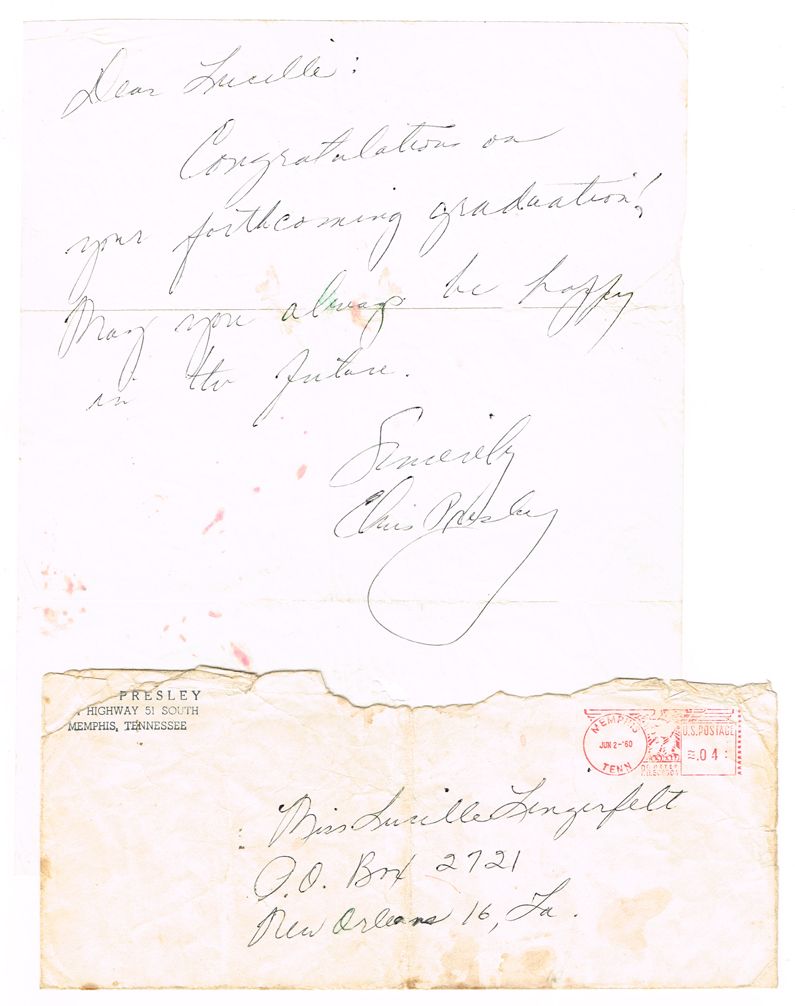 Dear Lucille:
Congratulations on
your forthcoming graduation!
May you always be happy
in the future.
Sincerely
Elvis Presley
PRESLEY
HIGHWAY 51 SOUTH
MEMPHIS, TENNESSEE
MEMPHIS
JUN 2-'60
TENN
U.S.POSTAGE
.04
Miss Lucille Lengerfelt
P.O. Box 2721
New Orleans 16, La.